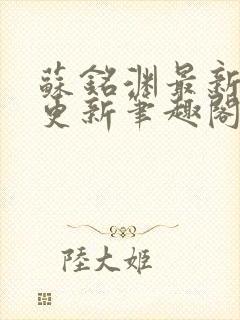 蘇銘淵最新
更新筆趣閣
陸大姬